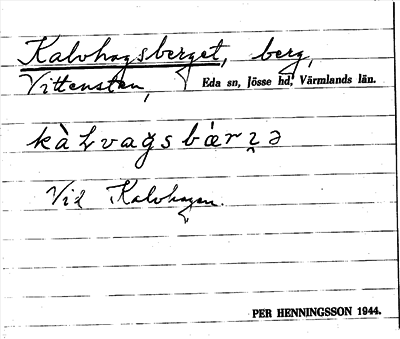 Kalvhagsberget, berg,
Vittensten, Eda sn, Jösse hd, Värmlands län.
kàLvagsbær
Vid Kalvhagen.
PER HENNINGSSON 1944.